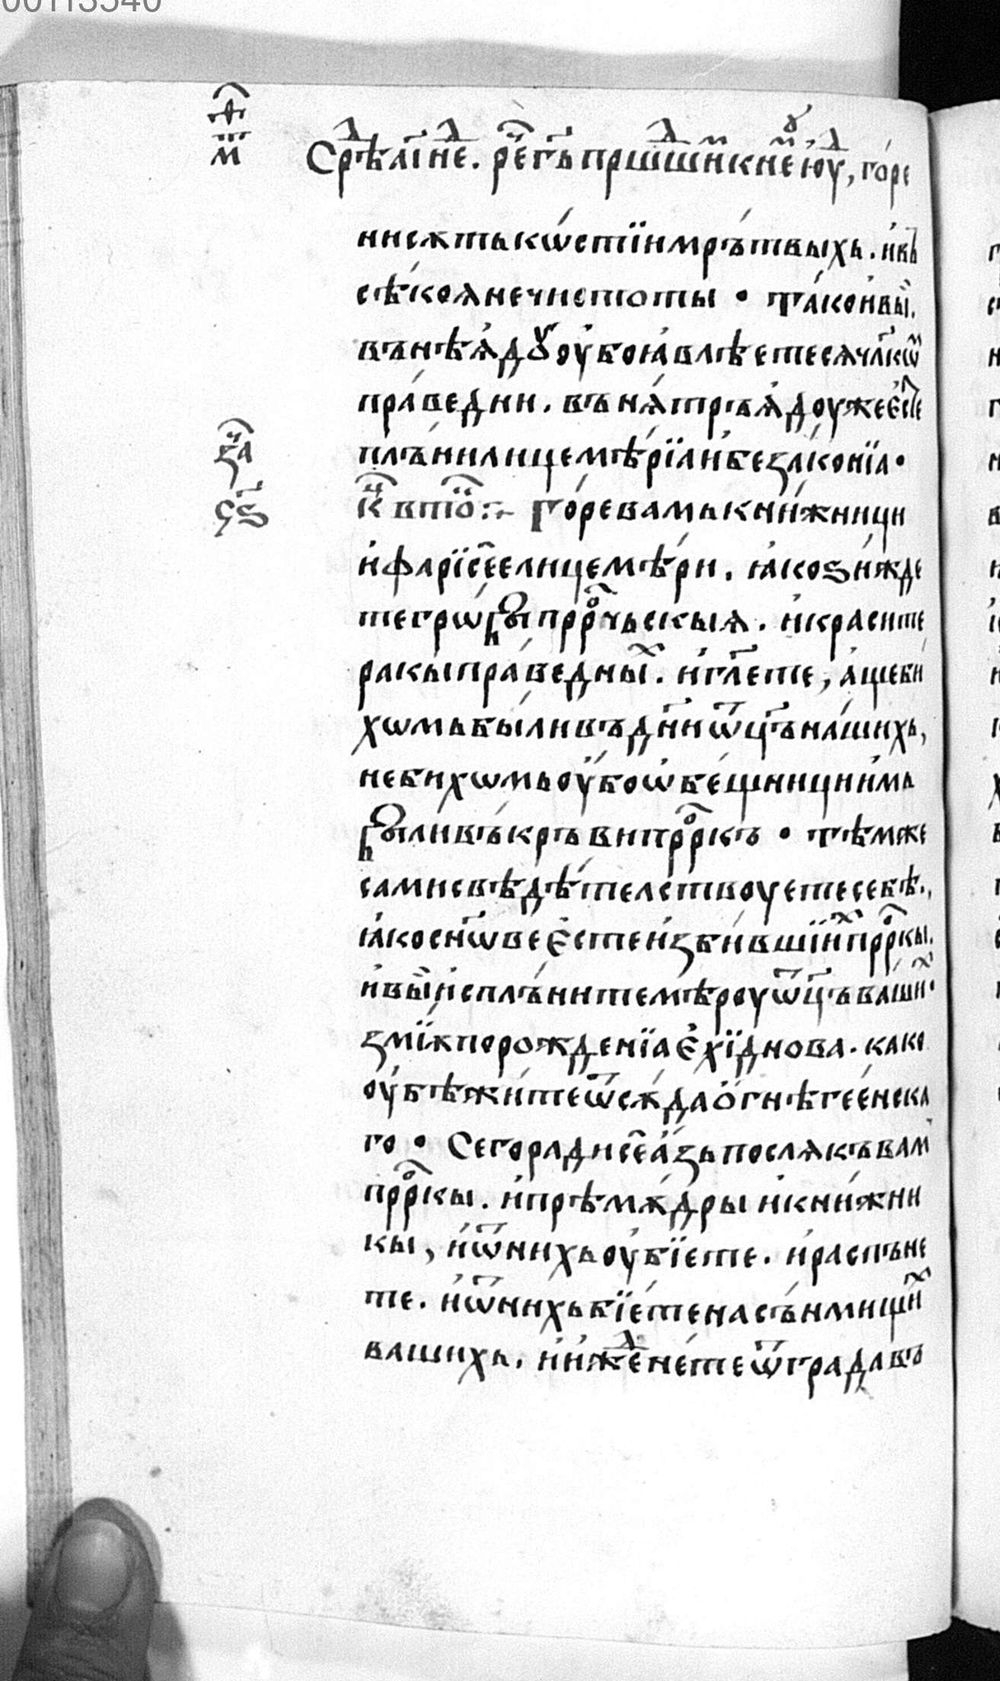 00113540
Срѣⷣ лі҃ неⷣ. рече г҃ь пришⷣшиⷨ к немоу їюⷣ, го́ре
ни сѫть кѡ́стїи мрътвыхь. и въ
сѣкоѧ нечистоты • та́ко и вы̀.
вънѣѧ́дꙋ оу́бо ꙗ҆влѣетесѧ чл҃кѡⷨ
пра́ведни. вънѫтръѧ́доу же є҆сте
плъни лицемѣрїа и беза́конїа •
зⷱ҇а
к҃ⷰ в піⷪ҇ :~ Го́ре вамь кни́жници
ч҃ѕ
и҆ фарїсее лицемѣри. ꙗ҆ко ѕи́жде
те грѡбы прⷪ҇рчьскыѧ. и҆ красите
ракы пра́ведныⷯ. и҆ гл҃ете, а́ще би
хѡмь были въ дн҃и ѿц҃ъ на́шихь,
не бихѡмь оу́бо ѡ҆бе́щници и҆мь
были въ кръви прⷪ҇ркъ • тѣмже
сами свѣдѣтелствоуете себѣ.,
ꙗ҆ко сн҃ѡве є҆сте и҆зби́вшїиⷯ прⷪ҇ркы.
и҆ вы̀ и҆сплъните мѣроу ѿц҃ъ ва́шиⷯ •
змїѫ порождені́а є҆хїднова. како
оу҆бѣжи́те ѿ сѫ́да ѻ҆гнѣ гее́нска
го • Сего ради се а҆́зь послѧ къ вамⷨ
прⷪ҇ркы. и҆ прѣмѫ́дры и҆ кни́жни
кы, и҆ ѿ нихь оу҆бїете. и҆ распъне
те. и҆ ѿ нихь бїе́те на съ́нмищиⷯ
вашихь. и҆ ижⷣенете ѿ града въ